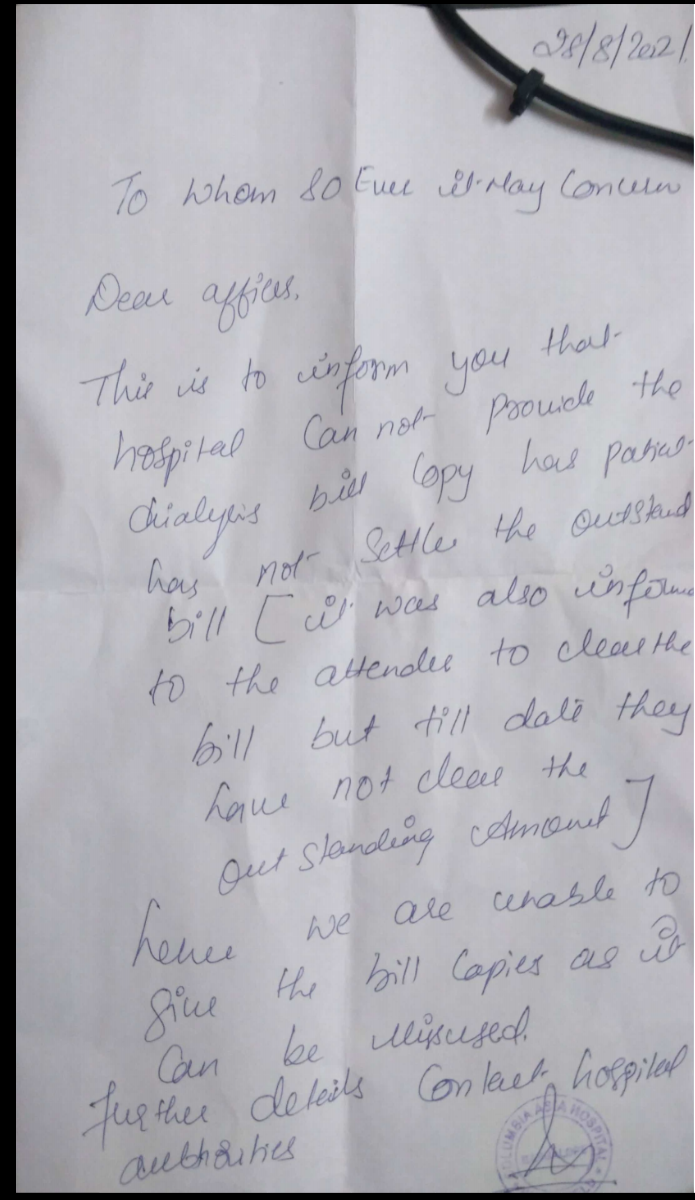 28/8/2021.
To Whom So Ever it May Concern
Dear officer,
This is to inform you that
hospital Can not provide the
dialysis bill Copy has patient
has not settle the outstand
bill [ it was also inform
to the attender to clear the
bill but till date they
have not clear the
outstanding Amount ]
hence we are unable to
give the bill Copies as it
Can be Misused.
further details Contact hospital
authorities
COLUMBIA ASIA HOSPITAL